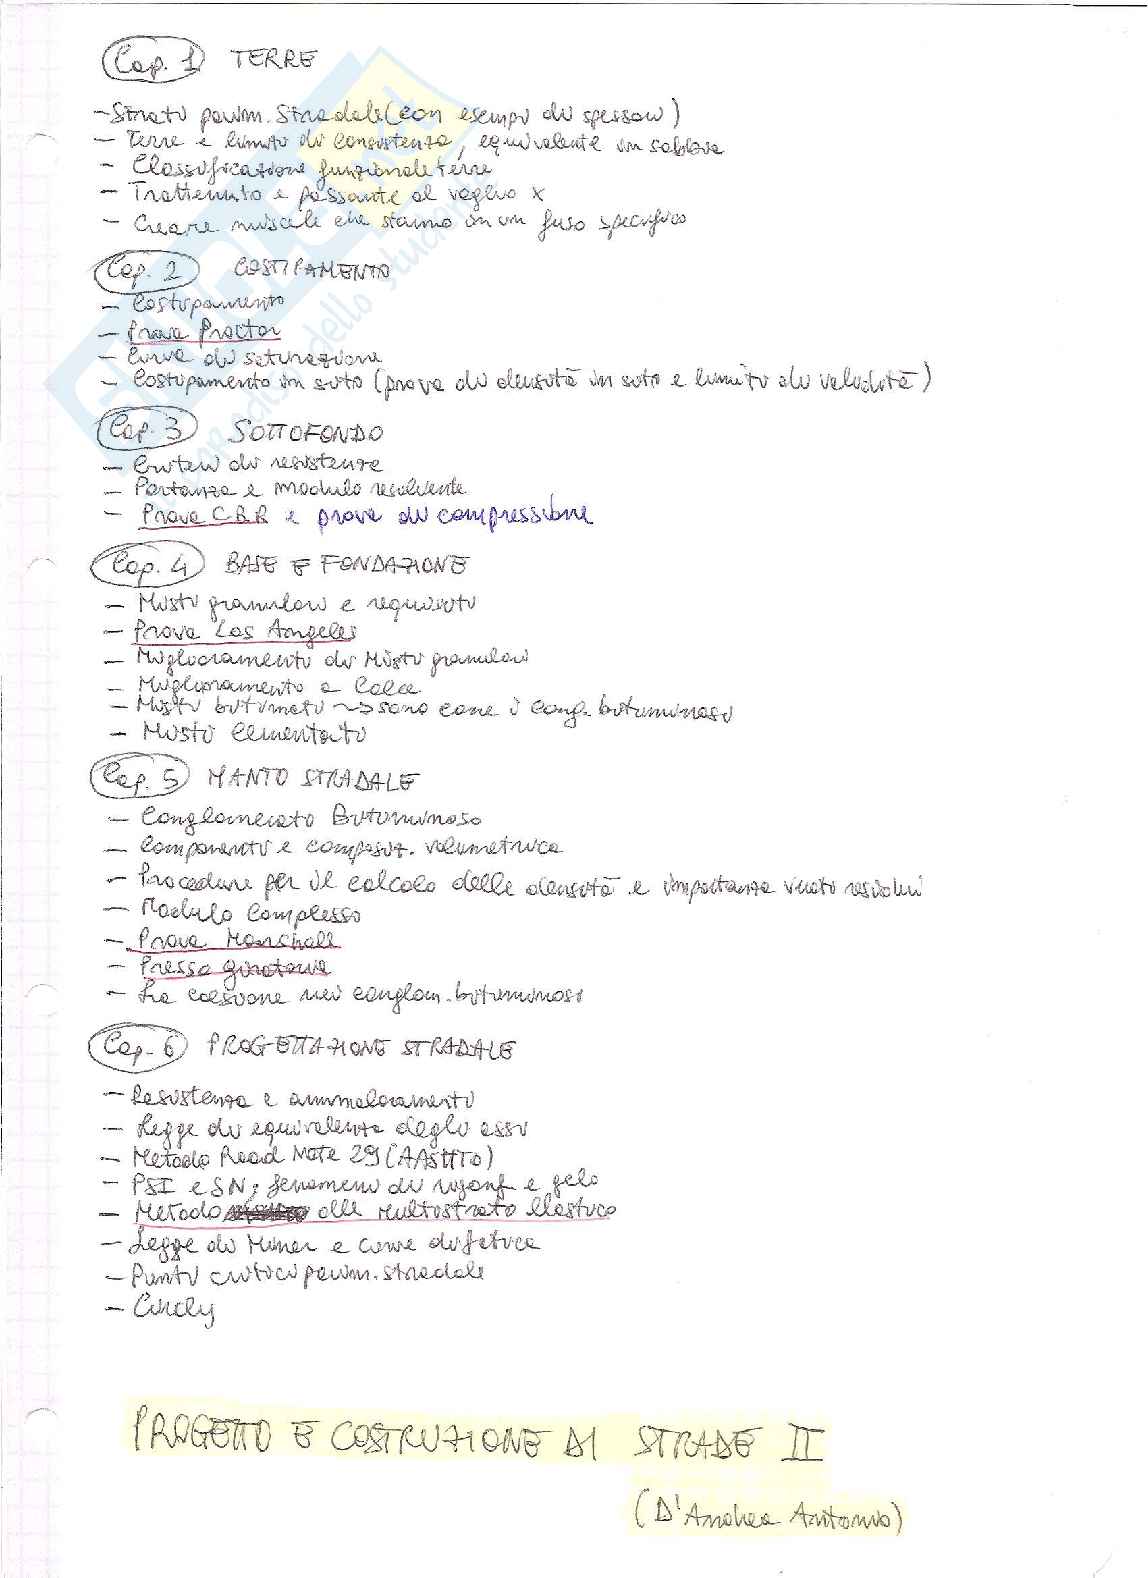 Cap. 1 TERRE
- Strati pavim. Stradale (con esempi di spessori)
- Terre e limiti di consistenza, equivalente in sabbia
- Classificazione funzionale terre
- Trattenuto e passante al vaglio x
- Creare miscele che stanno in un fuso specifico
Cap. 2 COSTIPAMENTO
- Costipamento
- Prova Proctor
- Curva di saturazione
- Costipamento in sito (prova di densità in sito e limiti di validità)
Cap. 3 SOTTOFONDO
- Criteri di resistenza
- Portanza e modulo resiliente
- Prova CBR e prova di compressione
Cap. 4 BASE E FONDAZIONE
- Misti granulari e requisiti
- Prova Los Angeles
- Miglioramento dei Misti granulari
- Miglioramento a Calce
- Misti bitumati ~> sono come i Cong. bituminosi
- Misti Cementati
Cap. 5 MANTO STRADALE
- Conglomerato Bituminoso
- Componenti e composiz. volumetrica
- Procedure per il calcolo delle densità e importanza vuoti residui
- Modulo Complesso
- Prova Marshall
- Pressa giratoria
- La coesione nei conglom. bituminosi
Cap. 6 PROGETTAZIONE STRADALE
- Resistenza e ammaloramento
- Legge di equivalenza degli assi
- Metodo Road Note 29 (AASHTO)
- PSI e SN, fenomeni di rigonf e gelo
- Metodo del Multistrato Elastico
- Legge di Miner e curve di fatica
- Punti critici pavim. stradale
- Circly
PROGETTO E COSTRUZIONE DI STRADE II
(D'Andrea Antonio)